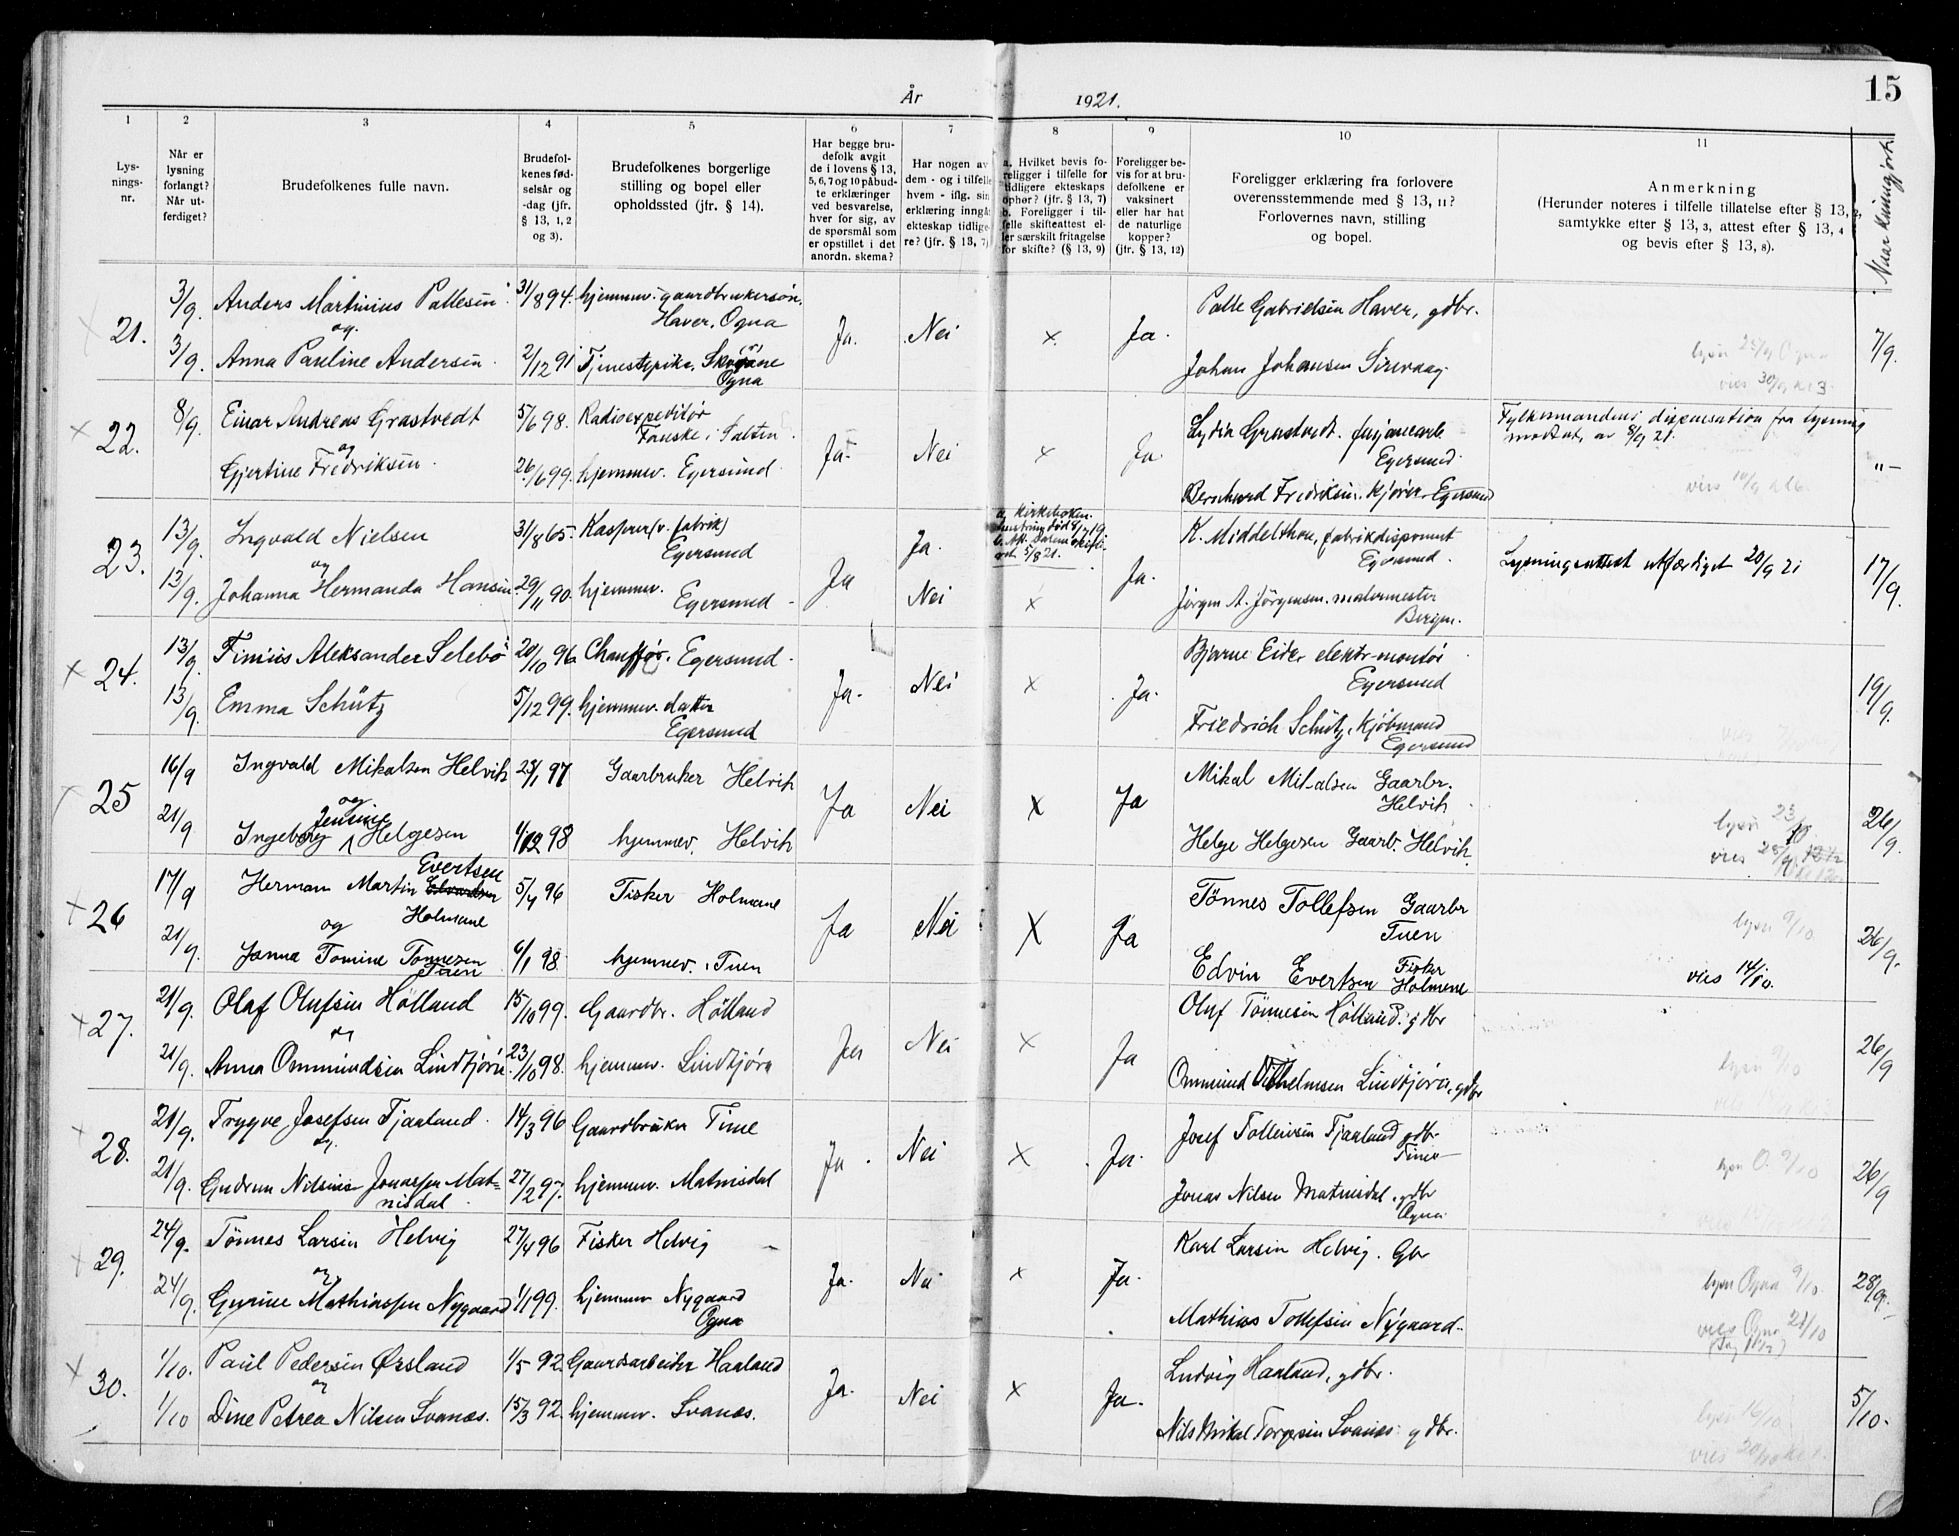 15
År 1921.
1 2 3 4 5 6 7 8 9 10 11
Lys-
nings-
nr.
Når er
lysning
forlangt?
Når ut-
ferdiget?
Brudefolkenes fulle navn.
Brudefol-
kenes fød-
selsår og
-dag (jfr.
§ 13, 1, 2
og 3).
Brudefolkenes borgerlige
stilling og bopel eller
opholdssted (jfr. § 14).
Har begge bru-
defolk avgit
de i lovens § 13,
5, 6, 7 og 10 påbud-
te erklæringer
ved besvarelse,
hver for sig, av
de spørsmål som
er opstillet i det
anordn. skema?
Har nogen av
dem - og i tilfelle
hvem - iflg. sin
erklæring inngå
ekteskap tidlige-
re? (jfr. § 13, 7)
a. Hvilket bevis fo-
religger i tilfelle for
tidligere ekteskaps
ophør? (jfr. § 13, 7)
b. Foreligger i til-
felle skifteattest el-
ler særskilt fritagelse
for skifte? (§ 13, 9)
Foreligger be-
vis for at bru-
defolkene er
vaksinert
eller har hat
de naturlige
kopper?
(jfr. § 13, 12)
Foreligger erklæring fra forlovere
overensstemmende med § 13, 11?
Forlovernes navn, stilling
og bopel.
Anmerkning
(Herunder noteres i tilfelle tillatelse efter § 13, 2,
samtykke efter § 13, 3, attest efter § 13, 4
og bevis efter § 13, 8).
Naar kundgjort
x 21. 3/9. Anders Martinius Pallesen 31/8 94. hjemmev. gaardbrukersøn. Haver, Ogna
og
3/9. Anna Pauline Andersen 2/12 91 Tjenestepike, Ogna
Ja. Nei x Ja.
Palle Gabrielsen Haver, gdbr.
Johan Johansen Sirevaag
7/9.
x 22. 8/9. Einar Andreas Grastvedt 5/6 98. Radioexpeditör
Fauske i Salten
og
Gjertine Fredriksen 26/6 99. hjemmev. Egersund
Ja Nei x Ja.
Lydia Grastvedt
Egersund
Bernhard Fredriksen, Egersund
Fylkesmandens dispensation fra lysning
mottat, av 8/9 21.
"–
23. 13/9. Ingvald Nielsen 31/8 65. Kasserer (v. fabrik)
Egersund
og
13/9. Johanna Hermanda Hansen 29/11 90. hjemmev.
Egersund
Ja Ja. Nei x Ja.
K. Middelthon, fabrikdisponent
Egersund.
Jørgen A. Jørgensen, malermester
Bergen.
Lysningsattest utfærdiget 20/9 21
17/9.
x 24. 13/9. Finius Aleksander Selebø 20/10 96 Chauffør. Egersund
13/9. Emma Schütz 5/12 99. hjemmev. datter
Egersund
Ja. Nei x Ja.
Bjarne Eike elektr-montör
Egersund
Friedrich Schütz, kjöbmand
Egersund
19/9.
25 16/9 Ingvald Mikalsen Helvik 23/1 97 Gaarbruker Helvik
og
21/9 Ingeborg Jensine Helgesen 1/12 98 hjemmev. Helvik
Ja Nei x Ja
Mikal Mikalsen Gaarbr.
Helvik
Helge Helgesen Gaarb. Helvik
26/9.
x 26 17/9 Herman Martin Evertsen
Holmane 5/4 96 Fisker Holmane
og
21/9. Janna Tomine Tønnesen
Tuen 6/1 98. hjemmev. Tuen
Ja Nei x Ja
Tönnes Tollefsen Gaarbr
Tuen
Edvin Evertsen Fisker
Holmene
lyst 9/10.
vies 14/10.
26/9.
x 27. 21/9. Olaf Olufsen Hölland 15/10 99. Gaardbr. Hölland
og
21/9. Anna Ommundsen Lindtjörn 23/10 98. hjemmev. Lindtjörn
Ja Nei x Ja
Oluf Tönnesen Hölland. gdbr
Ommund Lindtjörn, gdbr
lyst 9/10
26/9
28. 21/9. Trygve Josefsen Tjaaland 14/3 96 Gaardbruker Time
og
21/9. Gudrun Nilsine Jonassen Mat-
nisdal 27/2 97. hjemmev. Matnisdal
Ja. Nei x Ja.
Josef Tollevsen Tjaaland gdb.
Time
Jonas Nilsen Matnisdal, gdbr
Ogna
lyst O. 9/10
26/9
29. 24/9. Tönnes Larsen Helvig 27/4 96 Fisker Helvig
og
24/9. Gurine Mathiassen Nygaard 1/1 99. hjemmev Nygaard
Ogna
Ja. Nei x Ja.
Karl Larsen Helvig. Gbr
Mathias Tollefsen Nygaard
lyst Ogna 9/10.
vies Ogna 21/10
28/9.
x 30. 1/10. Paul Pedersen Ørsland 1/5 92. Gaardsarbeider Haaland
og
1/10 Dine Petrea Nilsen Svanes. 15/3 92. hjemmev. Svanes.
Ja. Nei x Ja.
Ludvig Haaland, gdbr.
Nils Mikal Torgersen Svanes gdbr.
lyst 16/10
5/10.